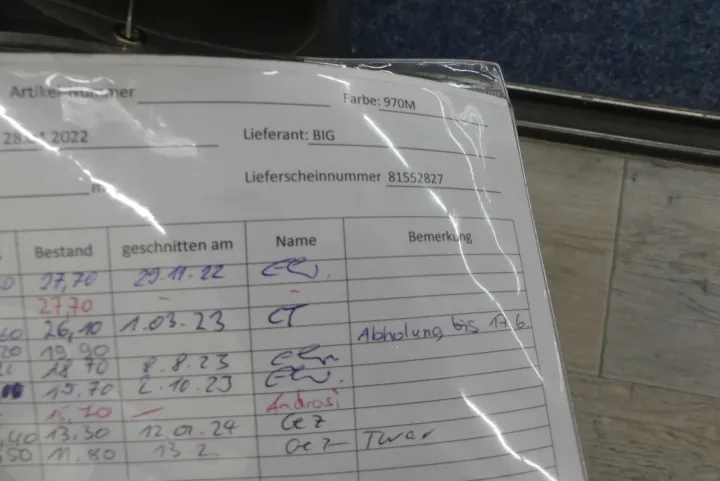 Artikel-Nummer
Farbe: 970M
2022
Lieferant: BIG
Lieferscheinnummer 81552827
Bestand geschnitten am Name Bemerkung
27,70 29.11.22
27,70 - -
26,10 1.03.23 CT Abholung bis 17.6.
19,90
18,70 8.8.23
15,70 2.10.23
15,70 — Andrasi
,40 13.30 12.01.24
50 11,80 13 2